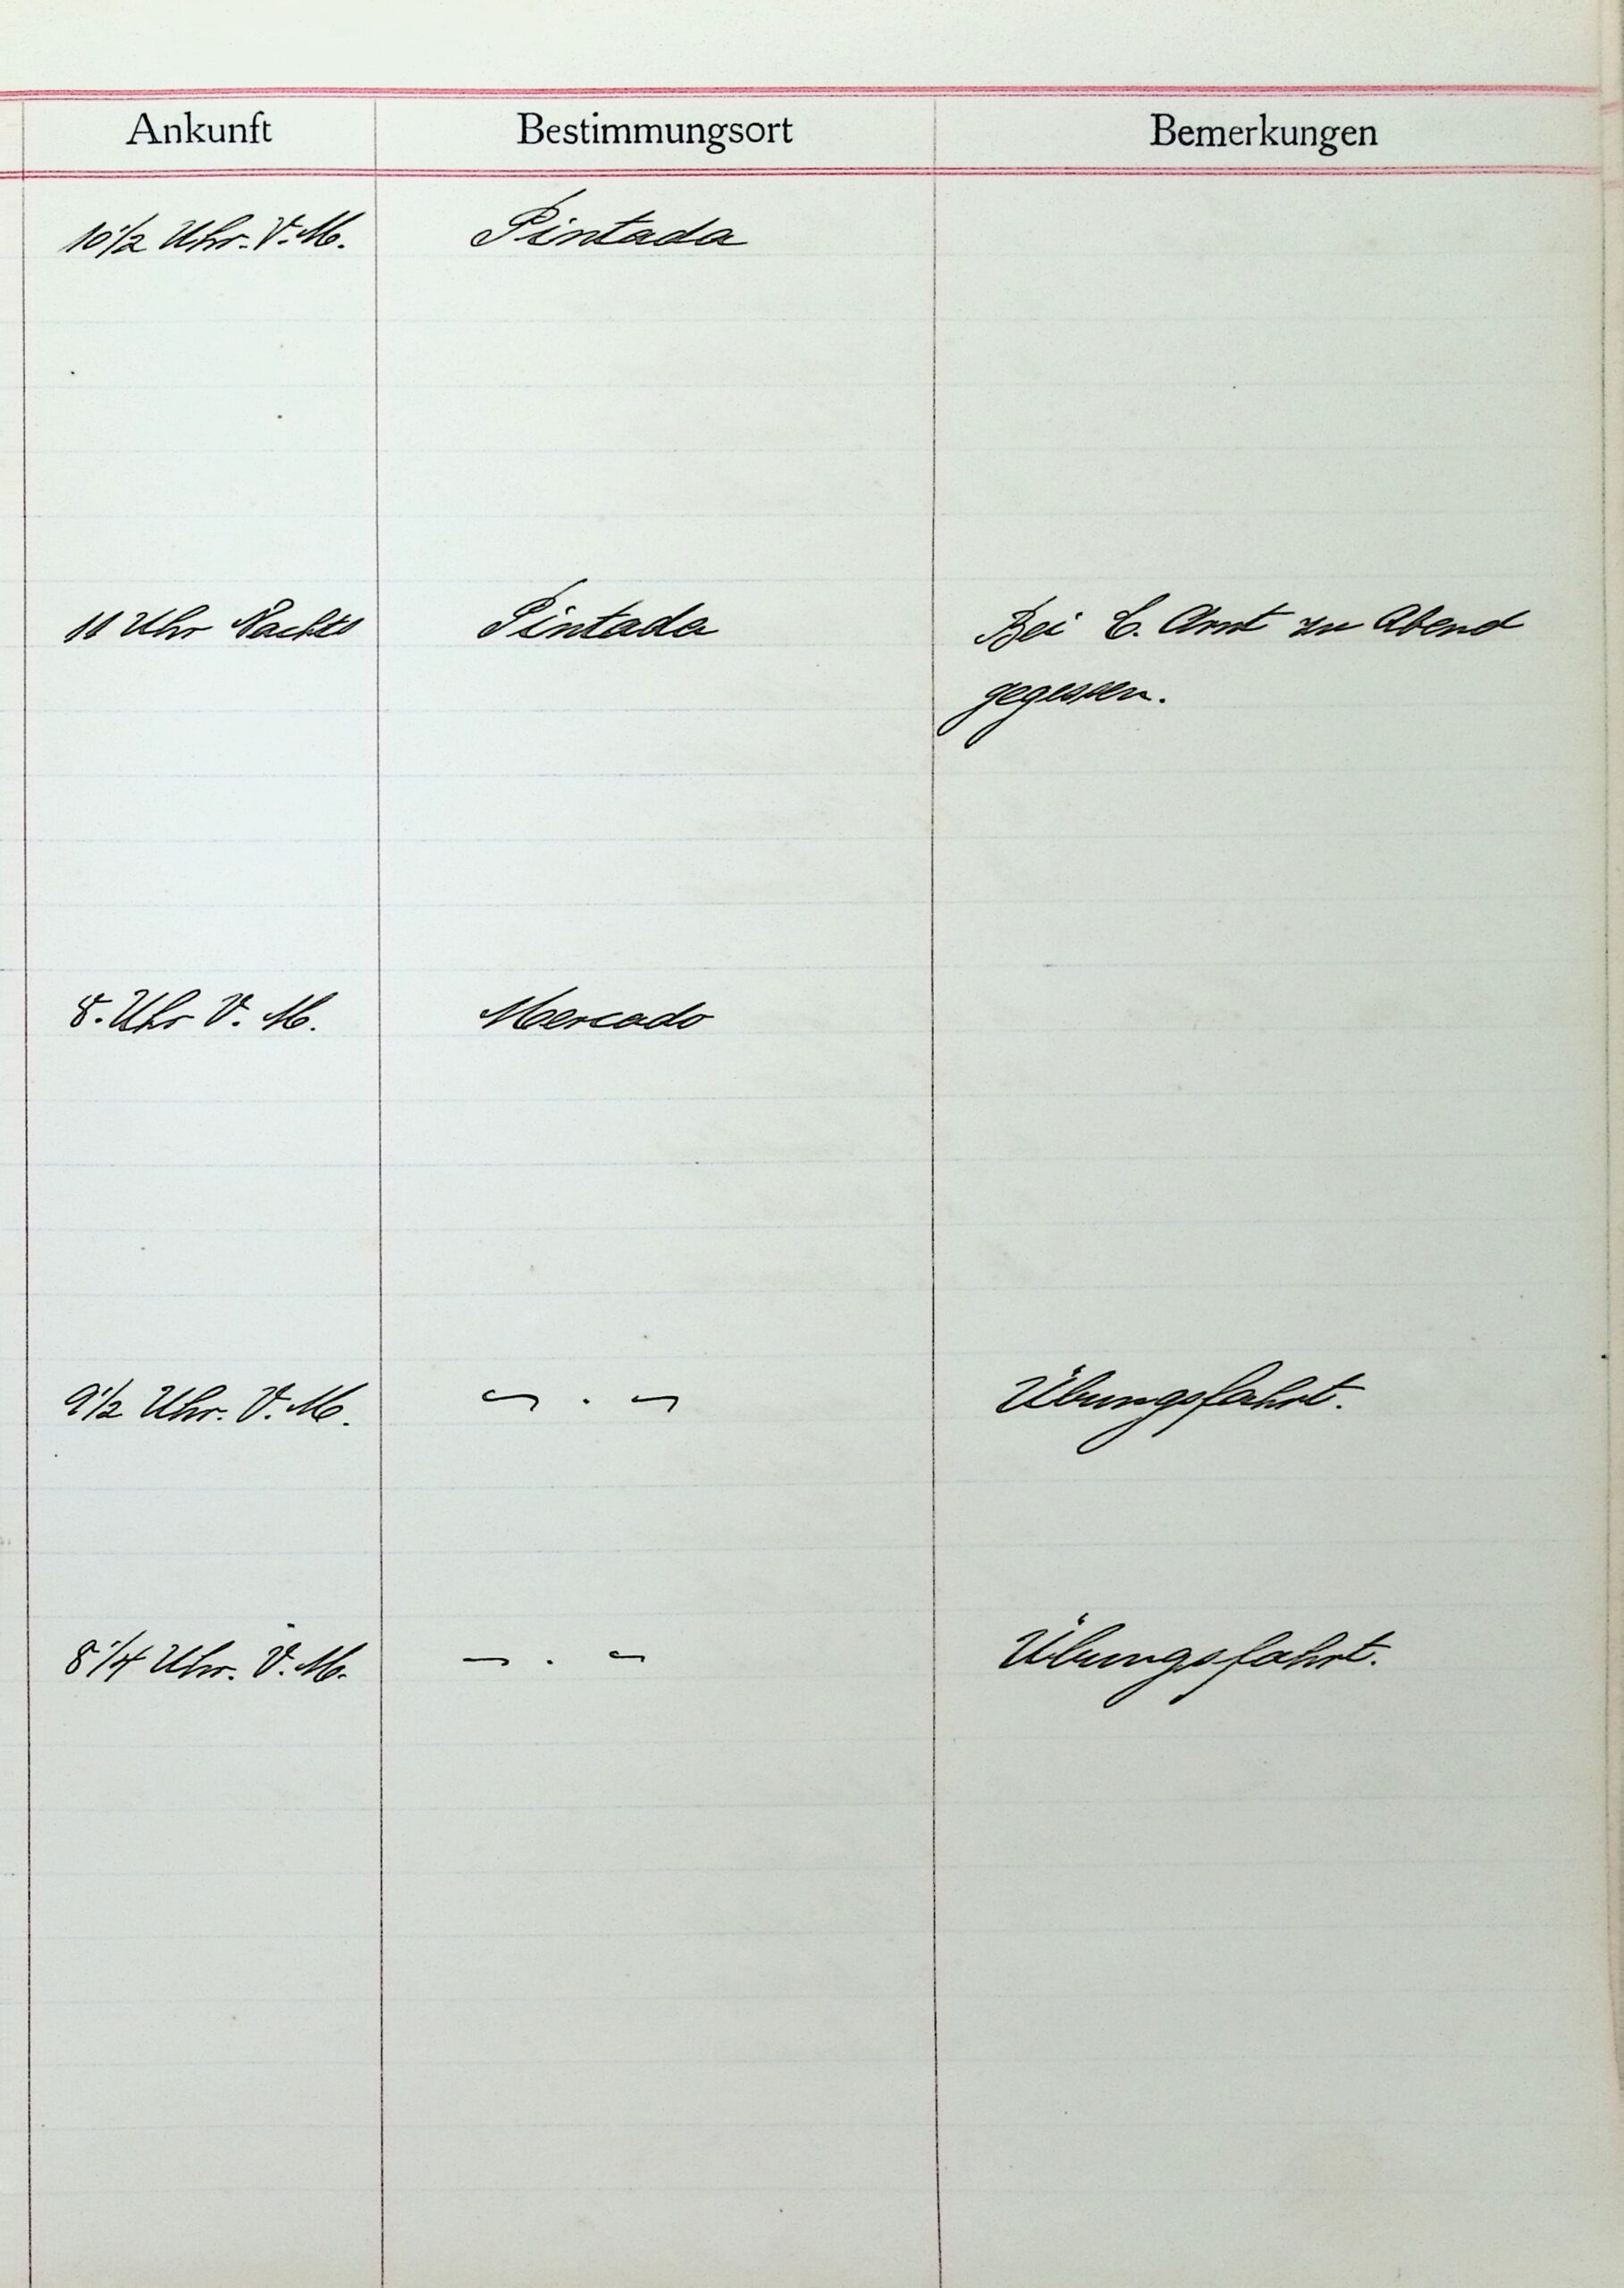 Ankunft Bestimmungsort Bemerkungen
10 1/2 Uhr. V. M. Pintada
11 Uhr Nachts Pintada Bei C. Arnt zu Abend
gegessen.
8. Uhr V. M. Mercado
9 1/2 Uhr. V. M. — . — Übungsfahrt.
8 1/4 Uhr. V. M. — . — Übungsfahrt.